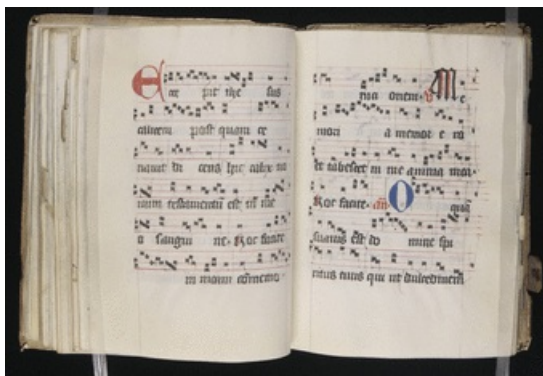 Acce pit ihe sus
calicem post quam ce
nauit di cens hic calix no
uum testamentū est in me
o sangui ne. Hoc facite
in meam cōmemo
racionem. V Me
mori a memor e ro
et tabescet in me anima mea.
Hoc facite. an O quā
suauis est do mine spi
ritus tuus qui ut dulcedinem